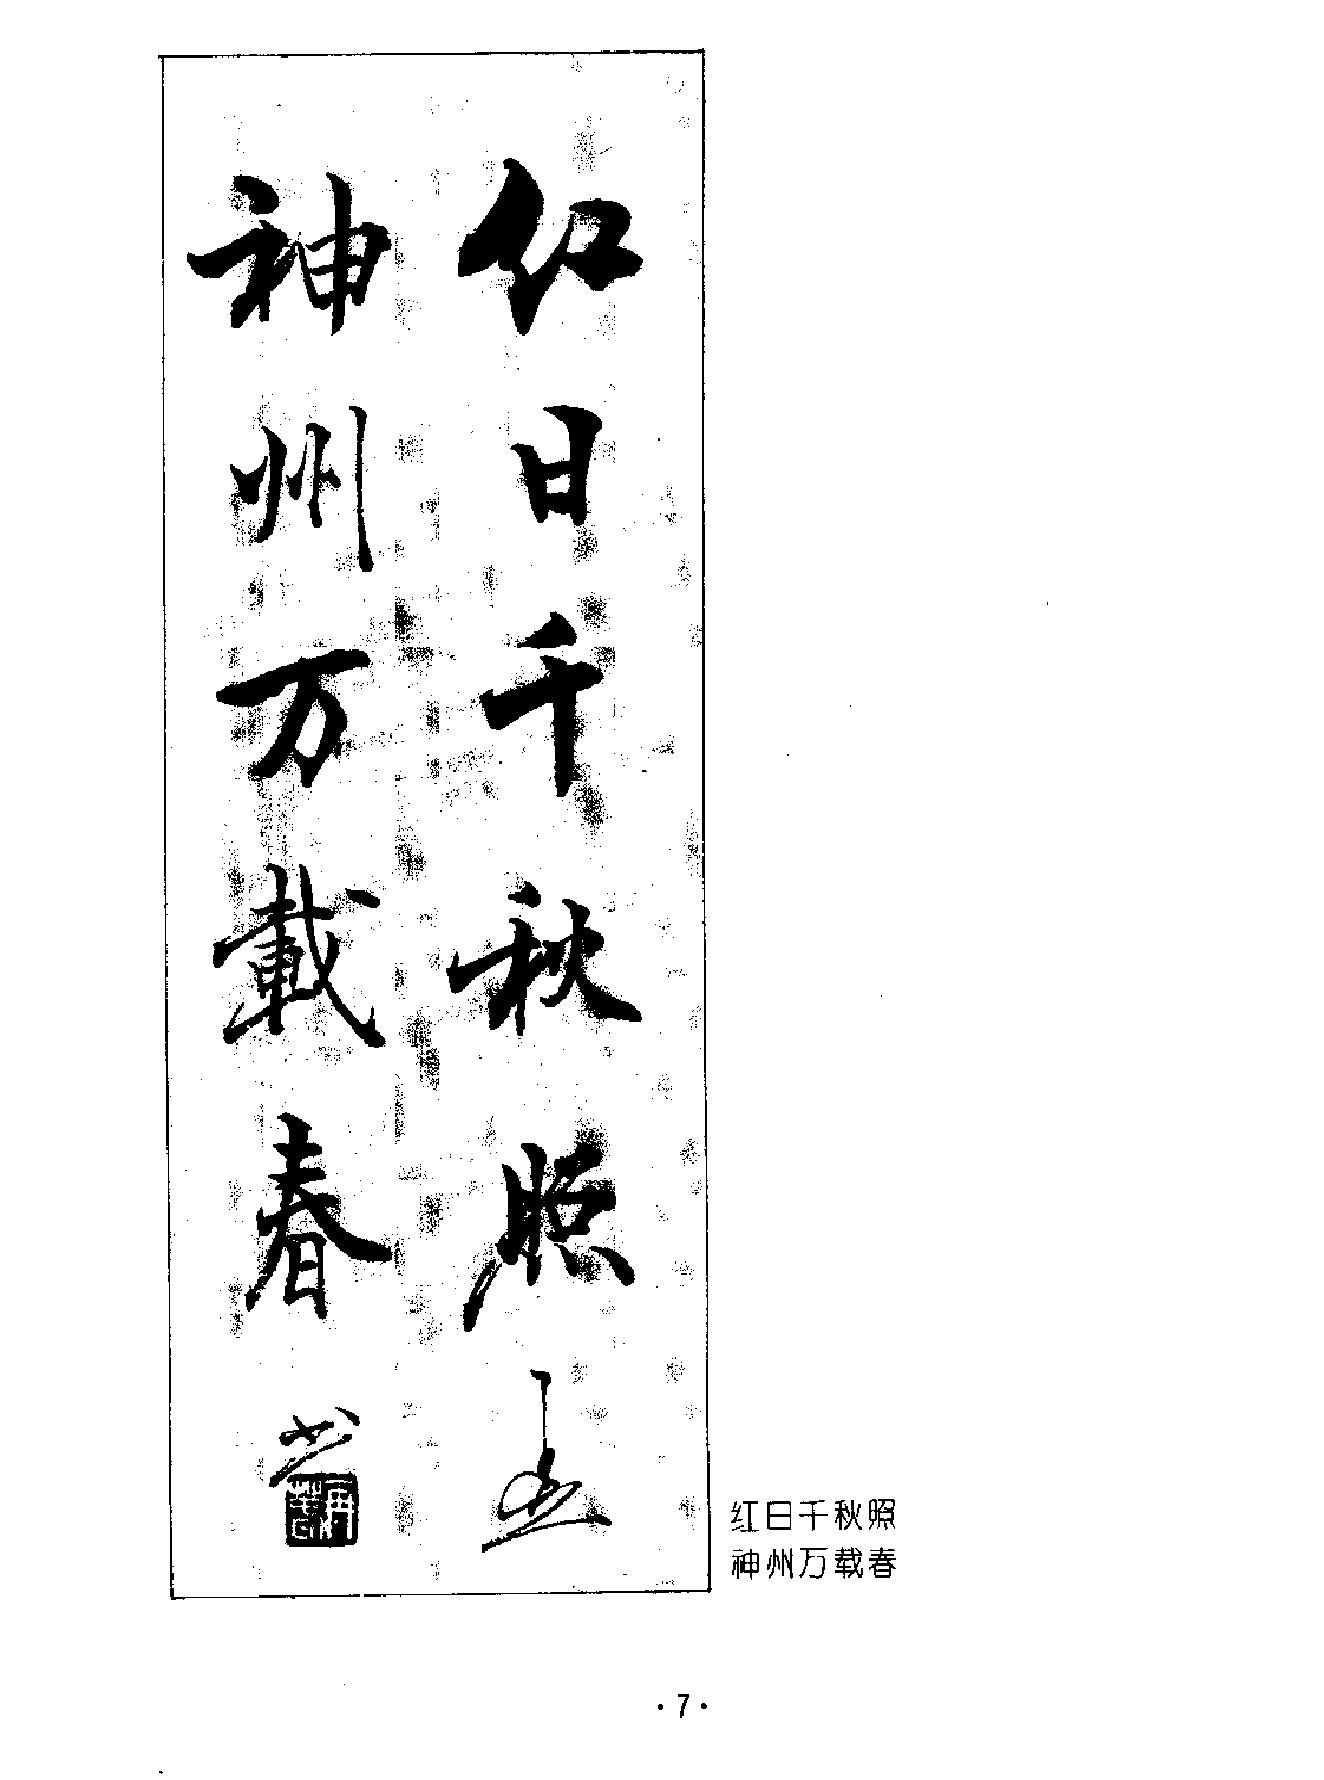 红日千秋照
神州万載春
书
红日千秋照
神州万载春
·7·